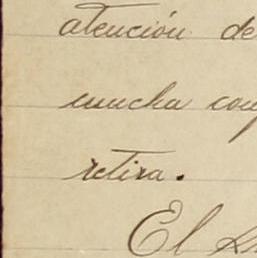 atención de
mucha con
retira.
El